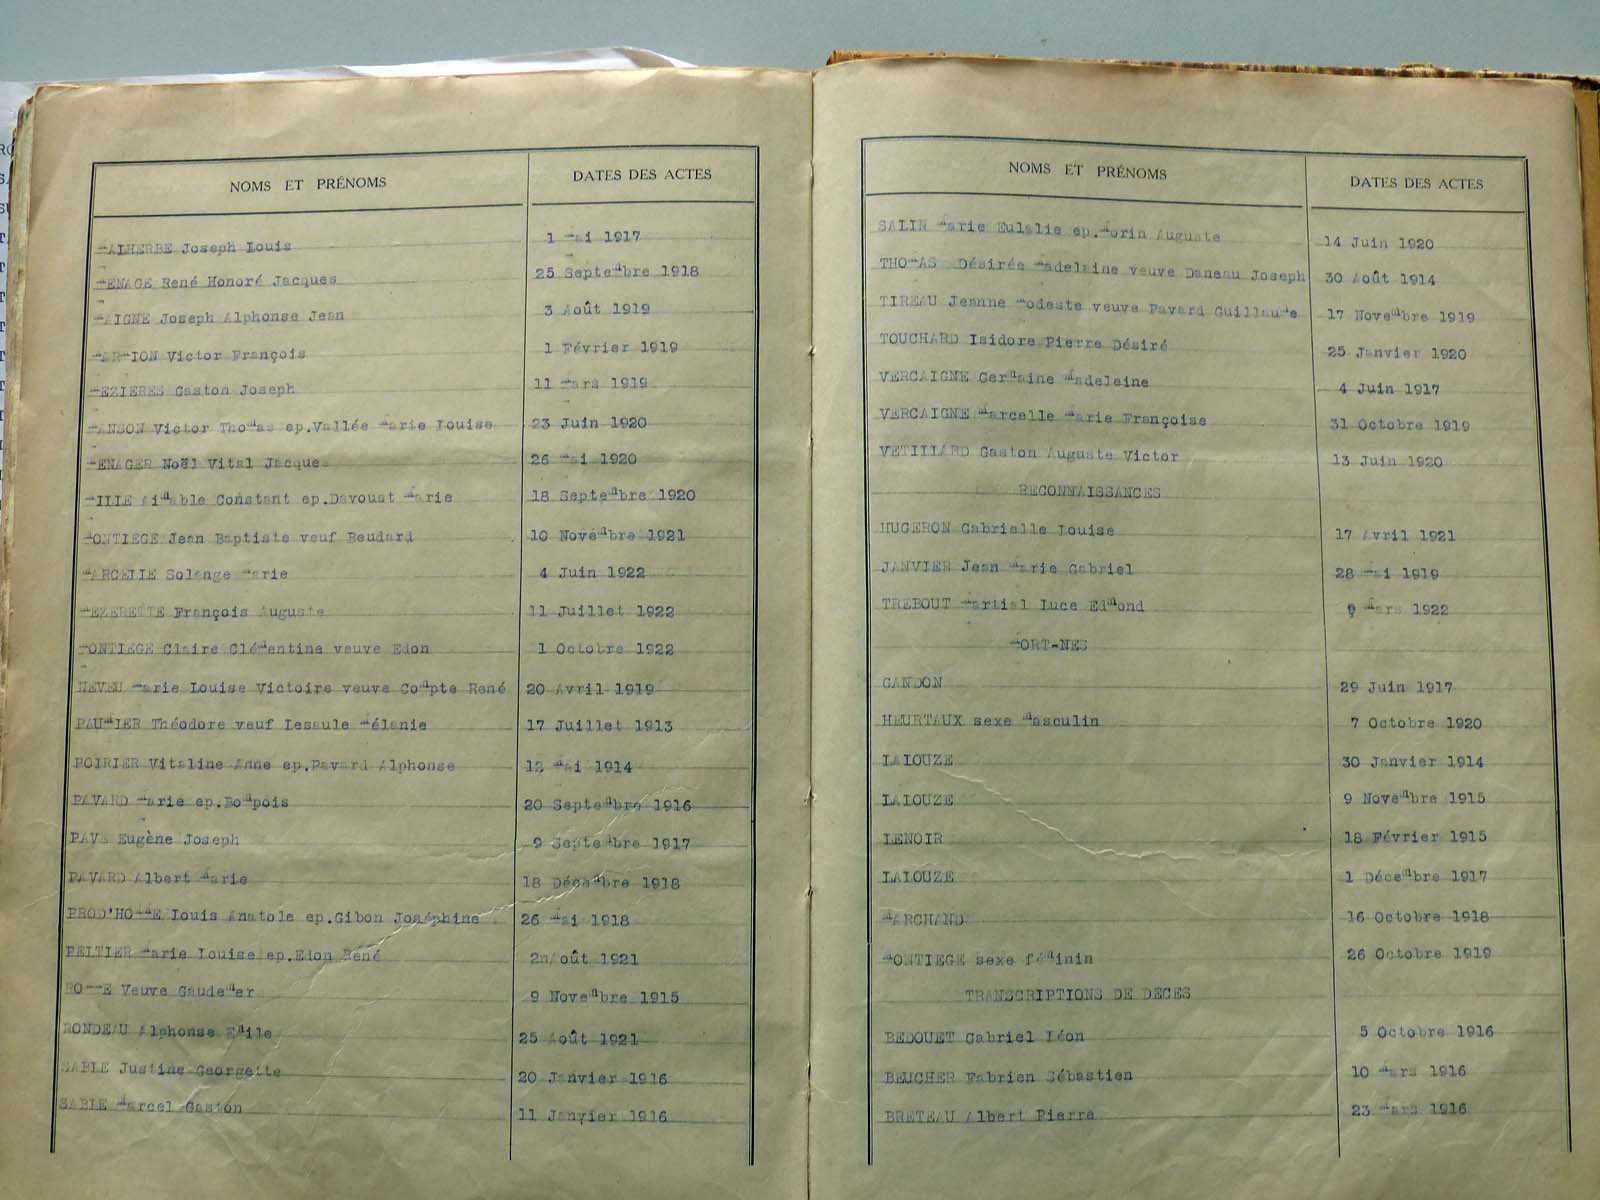 NOMS ET PRÉNOMS DATES DES ACTES
MALHERBE Joseph Louis 1 Mai 1917
MENAGE René Honoré Jacques 25 Septembre 1918
MAIGNE Joseph Alphonse Jean 3 Août 1919
MARMION Victor François 1 Février 1919
MEZIERES Gaston Joseph 11 Mars 1919
MANSON Victor Thomas ep.Vallée Marie Louise 23 Juin 1920
MENAGER Noël Vital Jacques 26 Mai 1920
MILLE Aimable Constant ep.Davoust Marie 18 Septembre 1920
MONTIEGE Jean Baptiste veuf Beudard 10 Novembre 1921
MARCELLE Solange Marie 4 Juin 1922
MEZERETTE François Auguste 11 Juillet 1922
MONTIEGE Claire Clémentine veuve Edon 1 Octobre 1922
NEVEU Marie Louise Victoire veuve Compte René 20 Avril 1919
PAUMIER Théodore veuf Lesaule Mélanie 17 Juillet 1913
POIRIER Vitaline Anne ep.Pavard Alphonse 12 Mai 1914
PAVARD Marie ep.Bompois 20 Septembre 1916
PAVE Eugène Joseph 9 Septembre 1917
PAVARD Albert Marie 18 Décembre 1918
PROD'HOMME Louis Anatole ep.Gibon Joséphine 26 Mai 1918
PELTIER Marie Louise ep.Edon René Août 1921
ROMME Veuve Gaudemer 9 Novembre 1915
RONDEAU Alphonse Emile 25 Août 1921
SABLE Justine Georgette 20 Janvier 1916
SABLE Marcel Gaston 11 Janvier 1916
NOMS ET PRÉNOMS DATES DES ACTES
SALIN Marie Eulalie ep.Morin Auguste 14 Juin 1920
THOMAS Désirée Madelaine veuve Daneau Joseph 30 Août 1914
TIREAU Jeanne Modeste veuve Pavard Guillaume 17 Novembre 1919
TOUCHARD Isidore Pierre Désiré 25 Janvier 1920
VERCAIGNE Germaine Madeleine 4 Juin 1917
VERCAIGNE Marcelle Marie Françoise 31 Octobre 1919
VETILLARD Gaston Auguste Victor 13 Juin 1920
RECONNAISSANCES
HUGERON Gabrielle Louise 17 Avril 1921
JANVIER Jean Marie Gabriel 28 Mai 1919
TREBOUT Martial Luce Edmond 9 Mars 1922
MORT-NES
GANDON 29 Juin 1917
HEURTAUX sexe Masculin 7 Octobre 1920
LALOUZE 30 Janvier 1914
LALOUZE 9 Novembre 1915
LENOIR 18 Février 1915
LALOUZE 1 Décembre 1917
MARCHAND 16 Octobre 1918
MONTIEGE sexe féminin 26 Octobre 1919
TRANSCRIPTIONS DE DECES
BEDOUET Gabriel Léon 5 Octobre 1916
BEUCHER Fabrien Sébastien 10 Mars 1916
BRETEAU Albert Pierre 23 Mars 1916